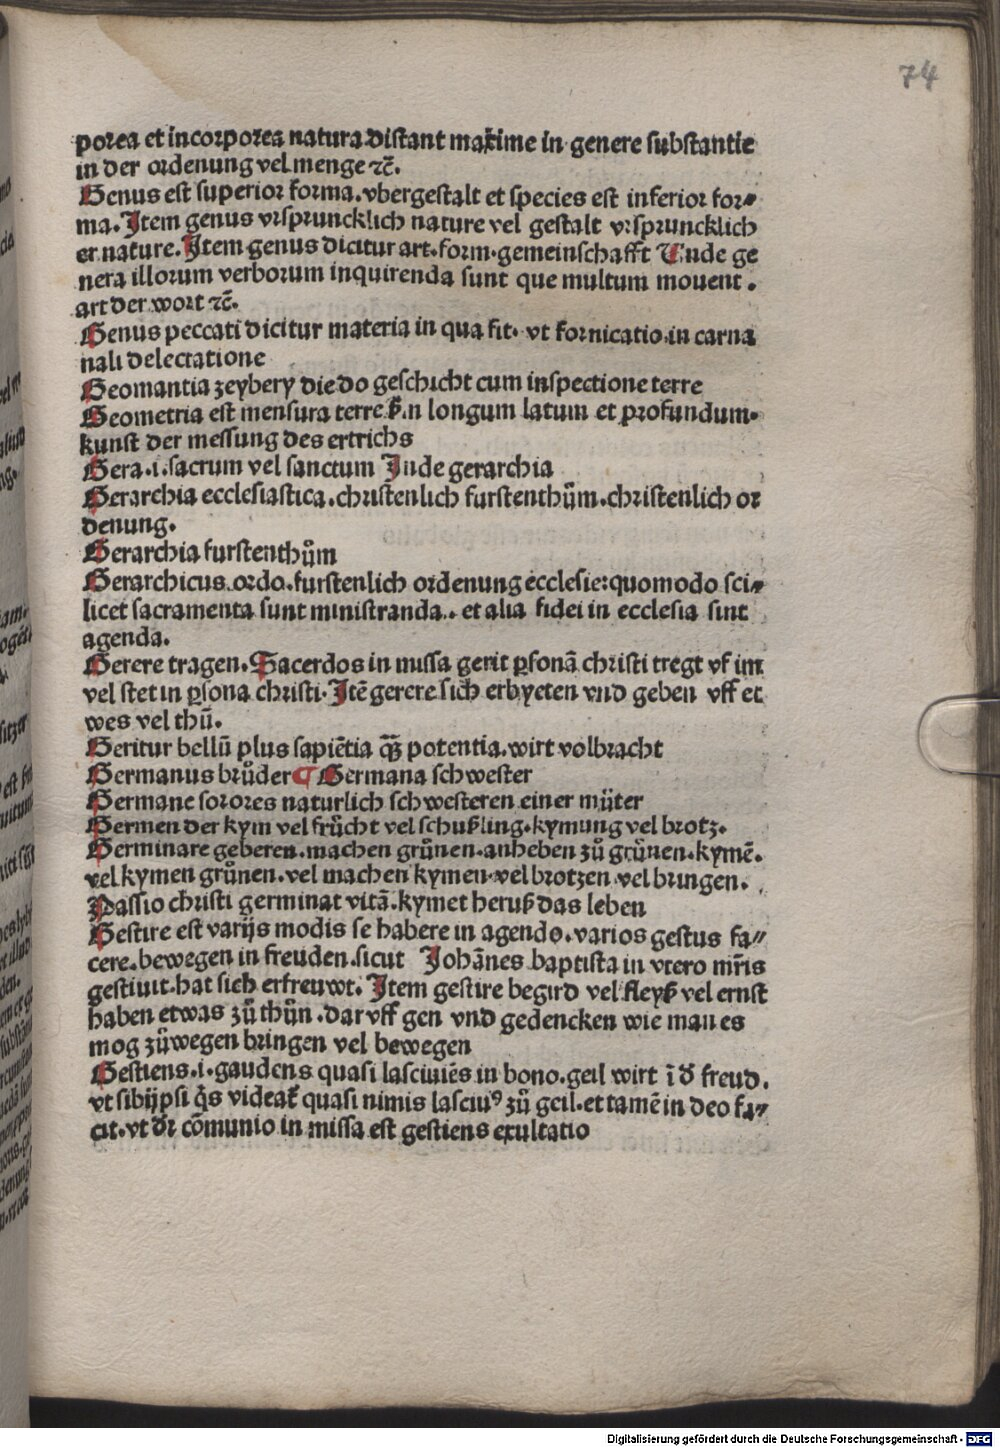 74
porea et incorporea natura distant maxime in genere substantie
in der ordenung vel menge ⁊c̄.
Genus est superior forma. vbergestalt et species est inferior for⸗
ma. Item genus vrspruncklich nature vel gestalt vrspruncklich
er nature. Item genus dicitur art. form. gemeinschafft Unde ge
nera illorum verborum inquirenda sunt que multum mouent.
art der wort ⁊c̄.
Genus peccati dicitur materia in qua fit. vt fornicatio in carna
nali delectatione
Geomantia zeybery die do geschicht cum inspectione terre
Geometria est mensura terre longum latum et profundum.
kunst der messung des ertrichs
Gera .i. sacrum vel sanctum Inde gerarchia
Gerarchia ecclesiastica. christenlich furstenthům. christenlich or
denung.
Gerarchia furstenthům
Gerarchicus ordo. furstenlich ordenung ecclesie: quomodo sci⸗
licet sacramenta sunt ministranda. et alia fidei in ecclesia sint
agenda.
Gerere tragen. Sacerdos in missa gerit ꝑsonā christi tregt vf im
vel stet in ꝑsona christi. Itē gerere sich erbyeten vnd geben vff et
wes vel thū.
Geritur bellū plus sapiētia q̄ꝫ potentia. wirt volbracht
Germanus brůder ¶ Germana schwester
Germane sorores naturlich schwesteren einer můter
Germen der kym vel frůcht vel schußling. kymung vel brotz.
Germinare geberen. machen grůnen. anheben zů grůnen. kymē.
vel kymen grůnen. vel machen kymen vel brotzen vel bringen.
Passio christi germinat vitā. kymet heruß das leben
Gestire est varijs modis se habere in agendo. varios gestus fa⸗
cere. bewegen in freuden. sicut Johānes baptista in vtero mr̄is
gestiuit. hat sich erfreuwt. Item gestire begird vel fleyß vel ernst
haben etwas zů thůn. dar vff gen vnd gedencken wie man es
mog zůwegen bringen vel bewegen
Gestiens .i. gaudens quasi lasciuiēs in bono. geil wirt ī đ freud.
vt sibijpsi q̄s videat̄ quasi nimis lasciuꝰ zů geil. et tamē in deo fa⸗
cit. vt dr̄ cōmunio in missa est gestiens exultatio
Digitalisierung gefördert durch die Deutsche Forschungsgemeinschaft - DFG